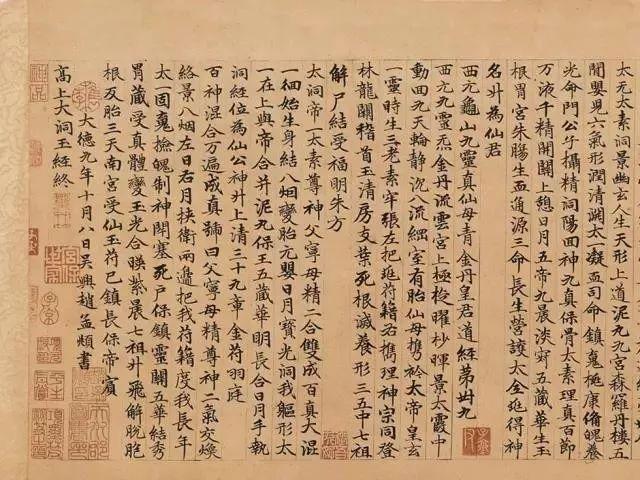 太元太素洞景幽玄人生上道泥丸九宮森羅丹樓五
閒嬰兒六氣形潤清淵太一凝血司命鎮䰟極康脩魄養
光命門公子攝精洞陽囬神九真保骨太素理真百節
万液千精開闢上憩日月五帝九晨淡五藏華生玉
根胃宮朱腸生血通源三命長生營護太金延得神
名廾為仙君
西元龜山九靈真仙母青金丹皇君道經苐丗九
西元九靈元金丹流雲宮上極稜曜杪暉景太霞中
動囬九天輪静沉八流緼室有胎仙母攜於太帝皇玄
一靈時生三老素牢張左把延符籍右攜理神宗同登
林龍闢稽首玉清房支葉死根滅養形三五中七祖
解尸結受福明朱方
太洞帝一太素尊神父寧母精二合雙成百真大混
一徊始生身結八烟變胎元嬰日月寶光洞我軀形太
一在上與帝合并泥丸保王五藏華明長合日月手執
洞経位為仙公神廾上清三十九章金符羽庭
百神混合万遍成真號曰父寧母精尊神二氣交煥
絡景八烟左日右月挾衛兩邊把我符籍度我長年
太一固䰟撿魄制神閉塞死戶保鎮靈關五華結秀
胃藏受真體變玉光合暎紫晨七祖廾飛解脫胞
根及胎三天南宮受仙玉符已鎮長保帝賓
大德九年十月八日吳興趙孟頫書
高上大洞玉經終